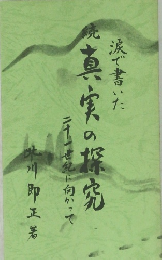 涙で書いた
続 真実の探究
二十一世紀に向かって
川 即正 著